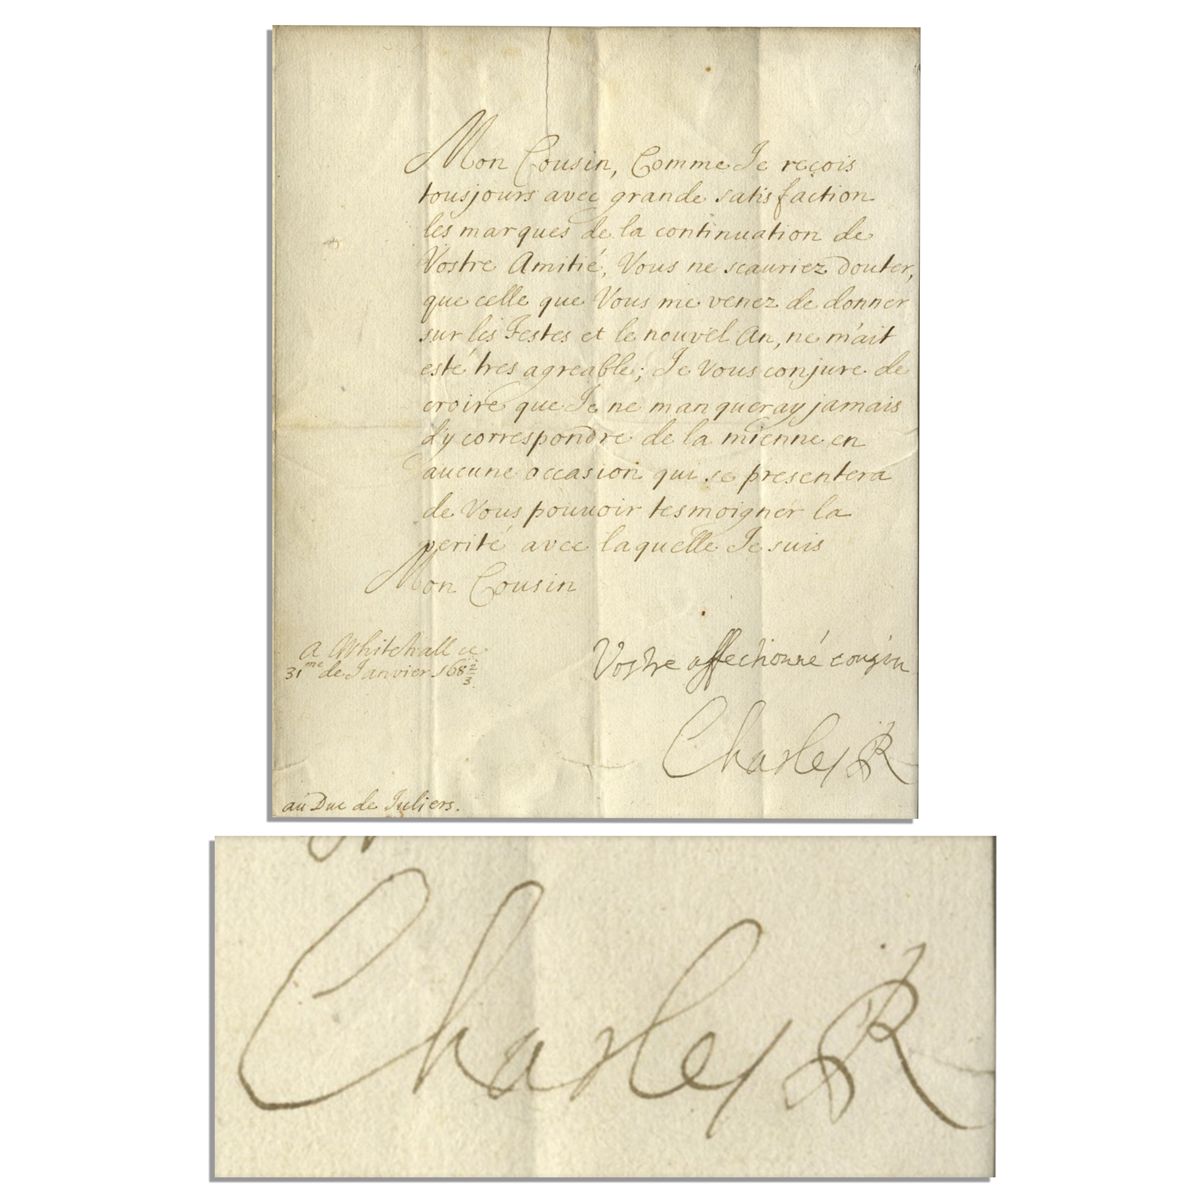 Mon Cousin, Comme Je reçois
tousjours avec grande satisfaction
les marques de la continuation de
Vostre Amitié, Vous ne scauriez douter,
que celle que Vous me venez de donner
sur les Festes et le nouvel An, ne m'ait
esté tres agreable; Je Vous conjure de
croire que Je ne manqueray jamais
d'y correspondre de la mienne en
aucune occasion qui se presentera
de Vous pouvoir tesmoigner la
verité avec laquelle Je suis
Mon Cousin
A Whitehall ce
31me de Janvier 168 2/3
Vostre affectionné cousin
Charles R
au Duc de Juliers.
Charles R